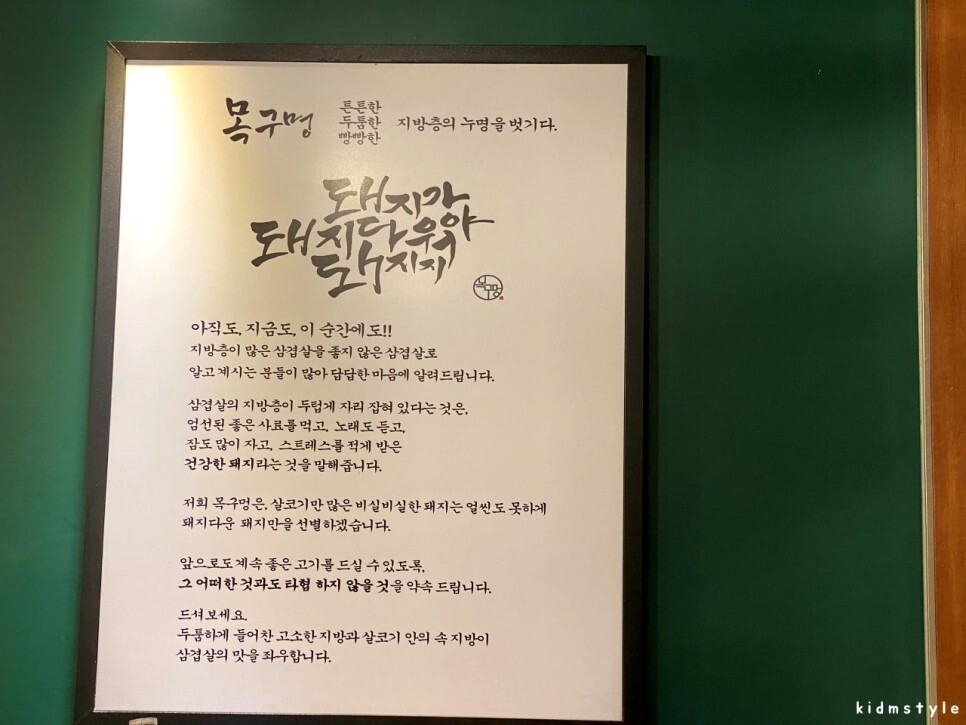 목구멍 튼튼한 두툼한 빵빵한 지방층의 누명을 벗기다.
돼지가
돼지다워야
돼지지
목구멍
아직도, 지금도, 이 순간에도!!
지방층이 많은 삼겹살을 좋지 않은 삼겹살로
알고 계시는 분들이 많아 담담한 마음에 알려드립니다.
삼겹살의 지방층이 두텁게 자리 잡혀 있다는 것은,
엄선된 좋은 사료를 먹고, 노래도 듣고,
잠도 많이 자고, 스트레스를 적게 받은
건강한 돼지라는 것을 말해줍니다.
저희 목구멍은, 살코기만 많은 비실비실한 돼지는 얼씬도 못하게
돼지다운 돼지만을 선별하겠습니다.
앞으로도 계속 좋은 고기를 드실 수 있도록,
그 어떠한 것과도 타협 하지 않을 것을 약속 드립니다.
드셔보세요.
두툼하게 들어찬 고소한 지방과 살코기 안의 속 지방이
삼겹살의 맛을 좌우합니다.
kidmstyle